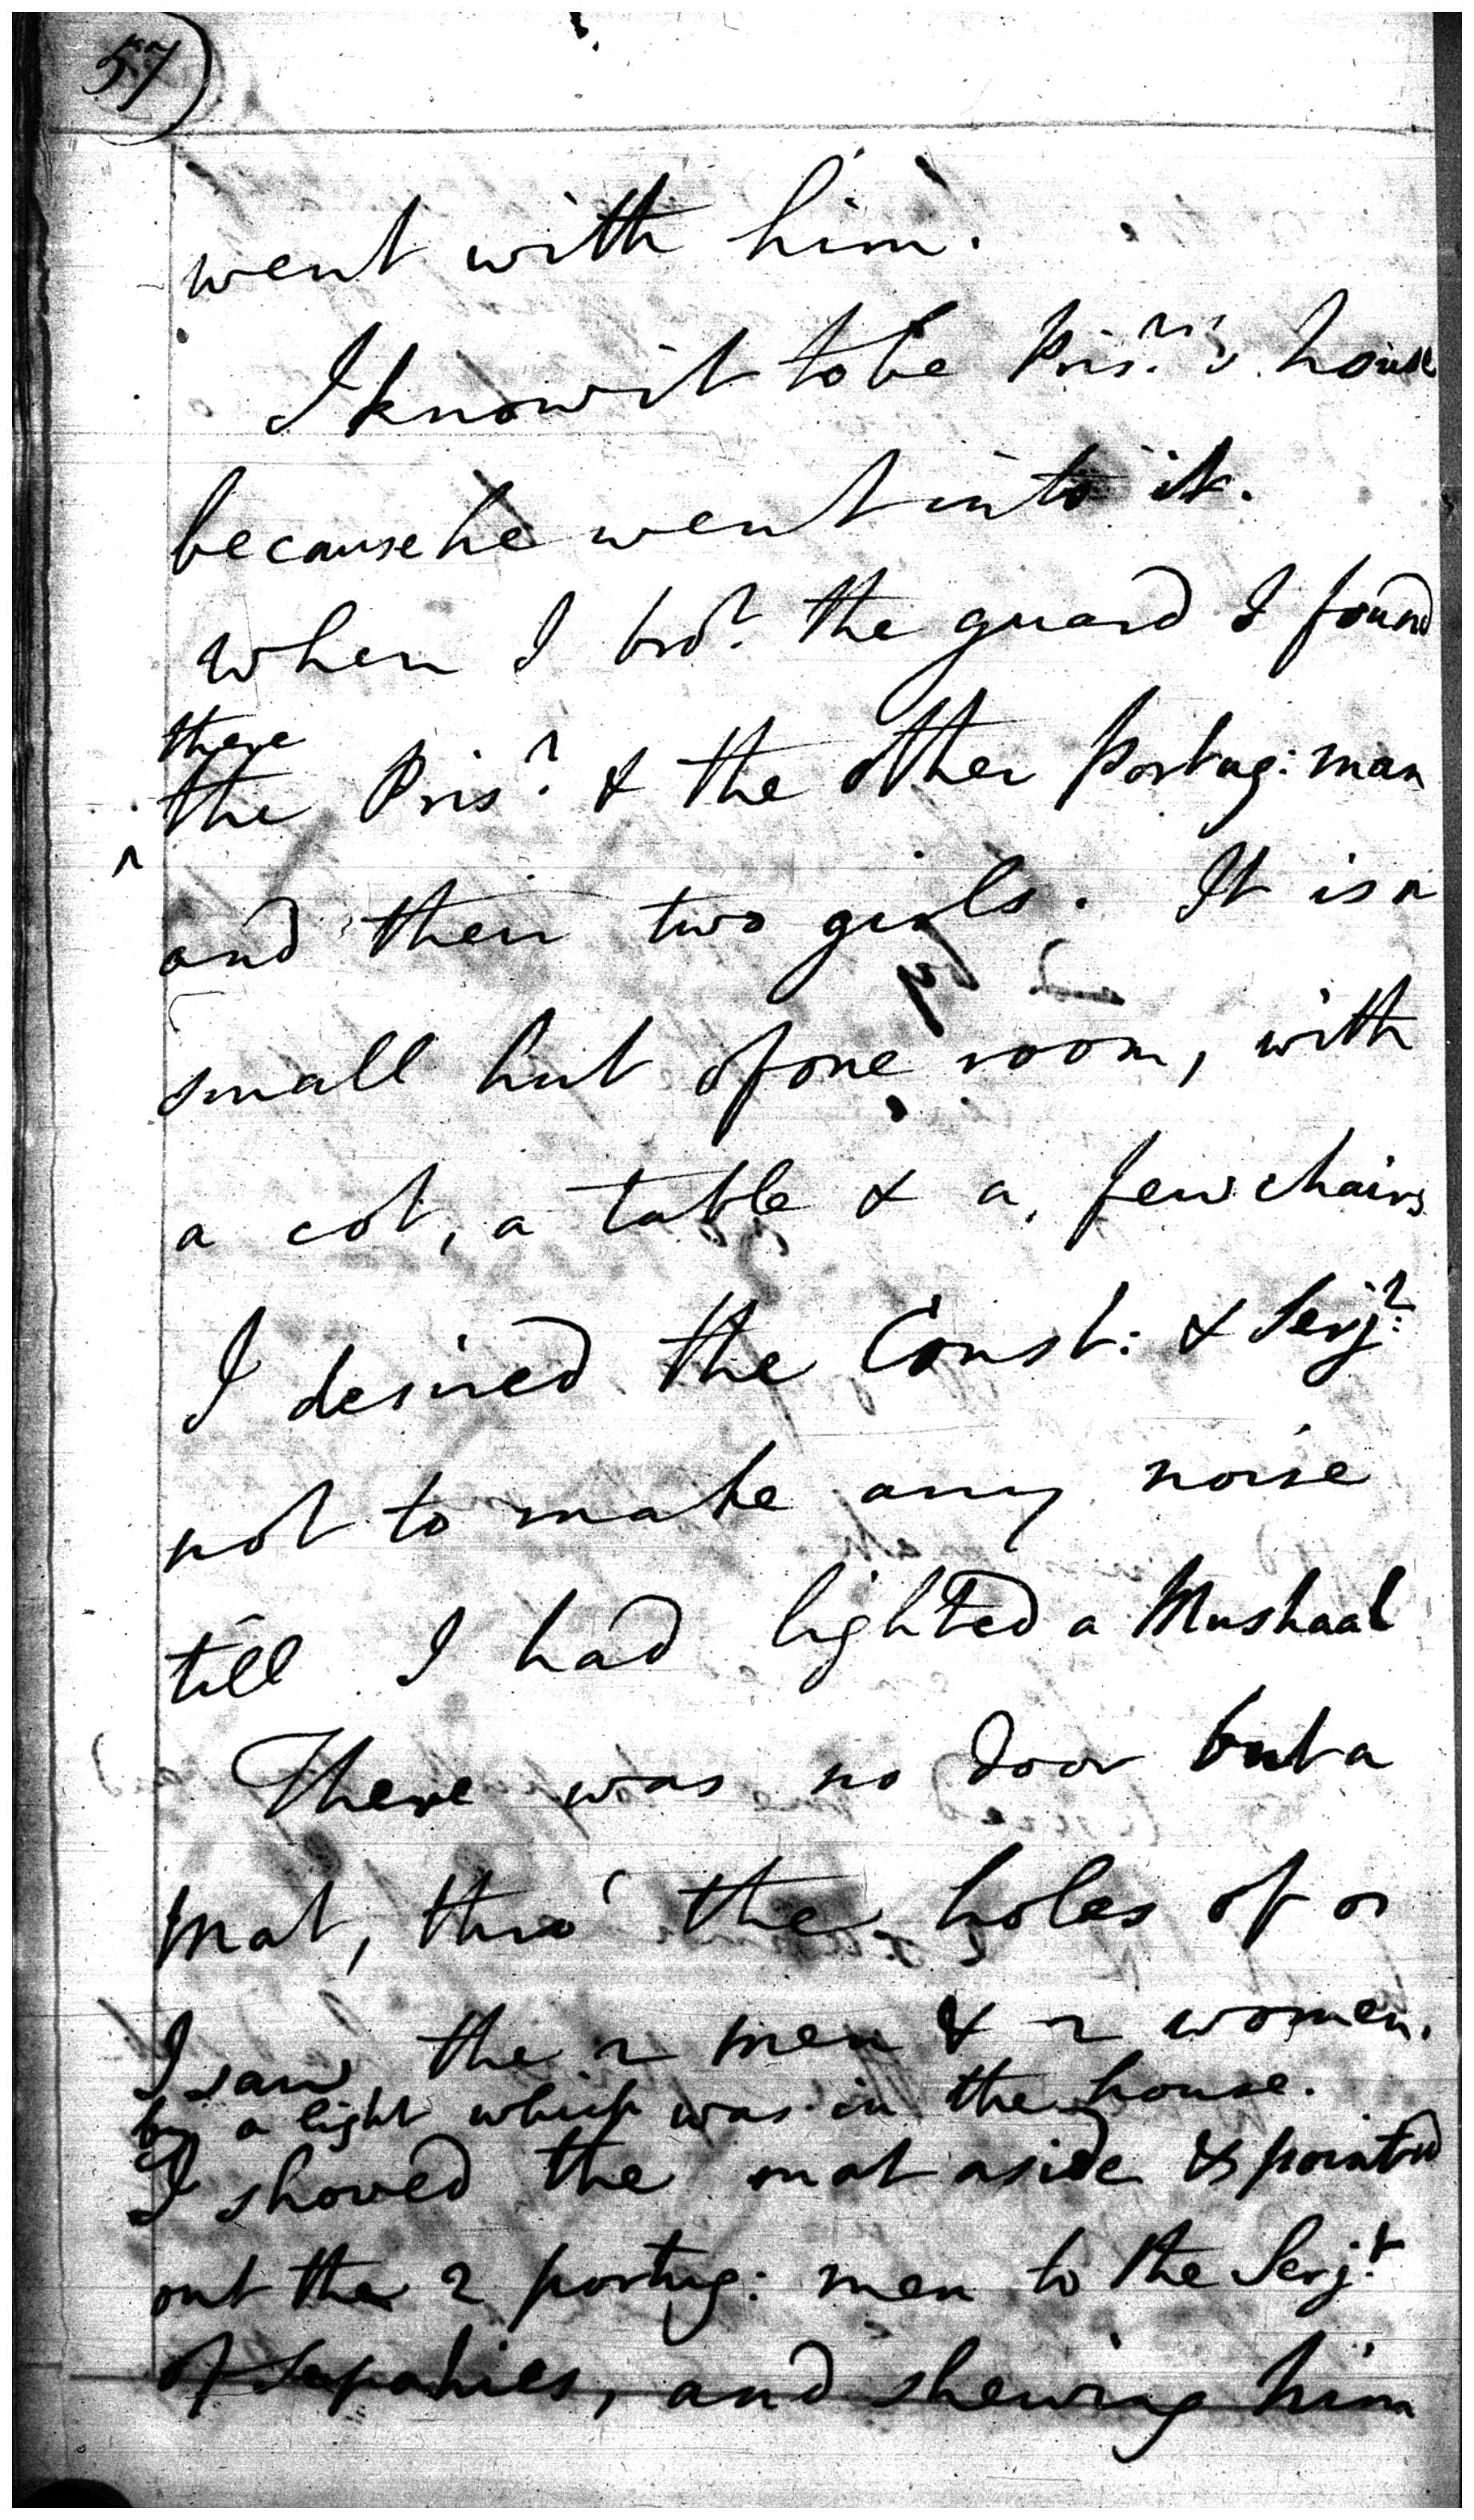 57
went with him.
I know it to be Pris.r's house
because he went into it.
when I bro.t the guard I found
there
the Pris.r & the other Portug: man
^
and their two girls. It is a
small hut of one room, with
a cot, a table & a few chairs
I desired the Const: & Serj.t
not to make any noise
till I had lighted a Mushaal
There was no door but a
mat, thro' the holes of
I saw the 2 men & 2 women.
by a light which was in the house.
I shoved the mat aside & pointed
out the 2 portug: men to the Serj.t
of Sepahies, and shewing him